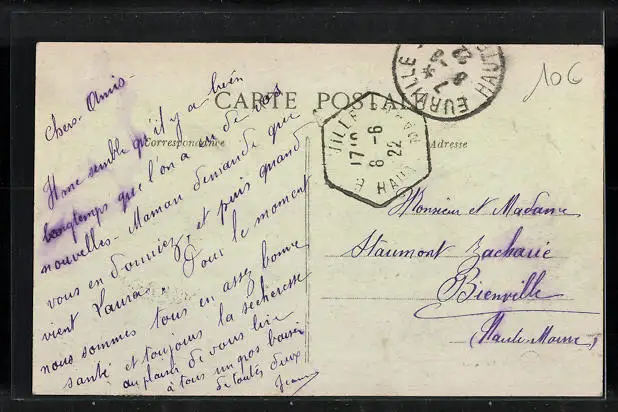 CARTE POSTALE
Correspondance
Adresse
Chers Amis
Il me semble qu'il y a bien
longtemps que l'on a eu de vos
nouvelles - Maman demande que
vous en donniez, et puis quand
vient Laura. Pour le moment
nous sommes tous en assez bonne
santé et toujours la sécheresse
au plaisir de vous lire
à tous un gros baiser
de toutes deux
Jeanne
EURVILLE
HAUTE
8-6
22
Monsieur et Madame
Haumont Zacharie
Bienville
(Haute-Marne)
10€